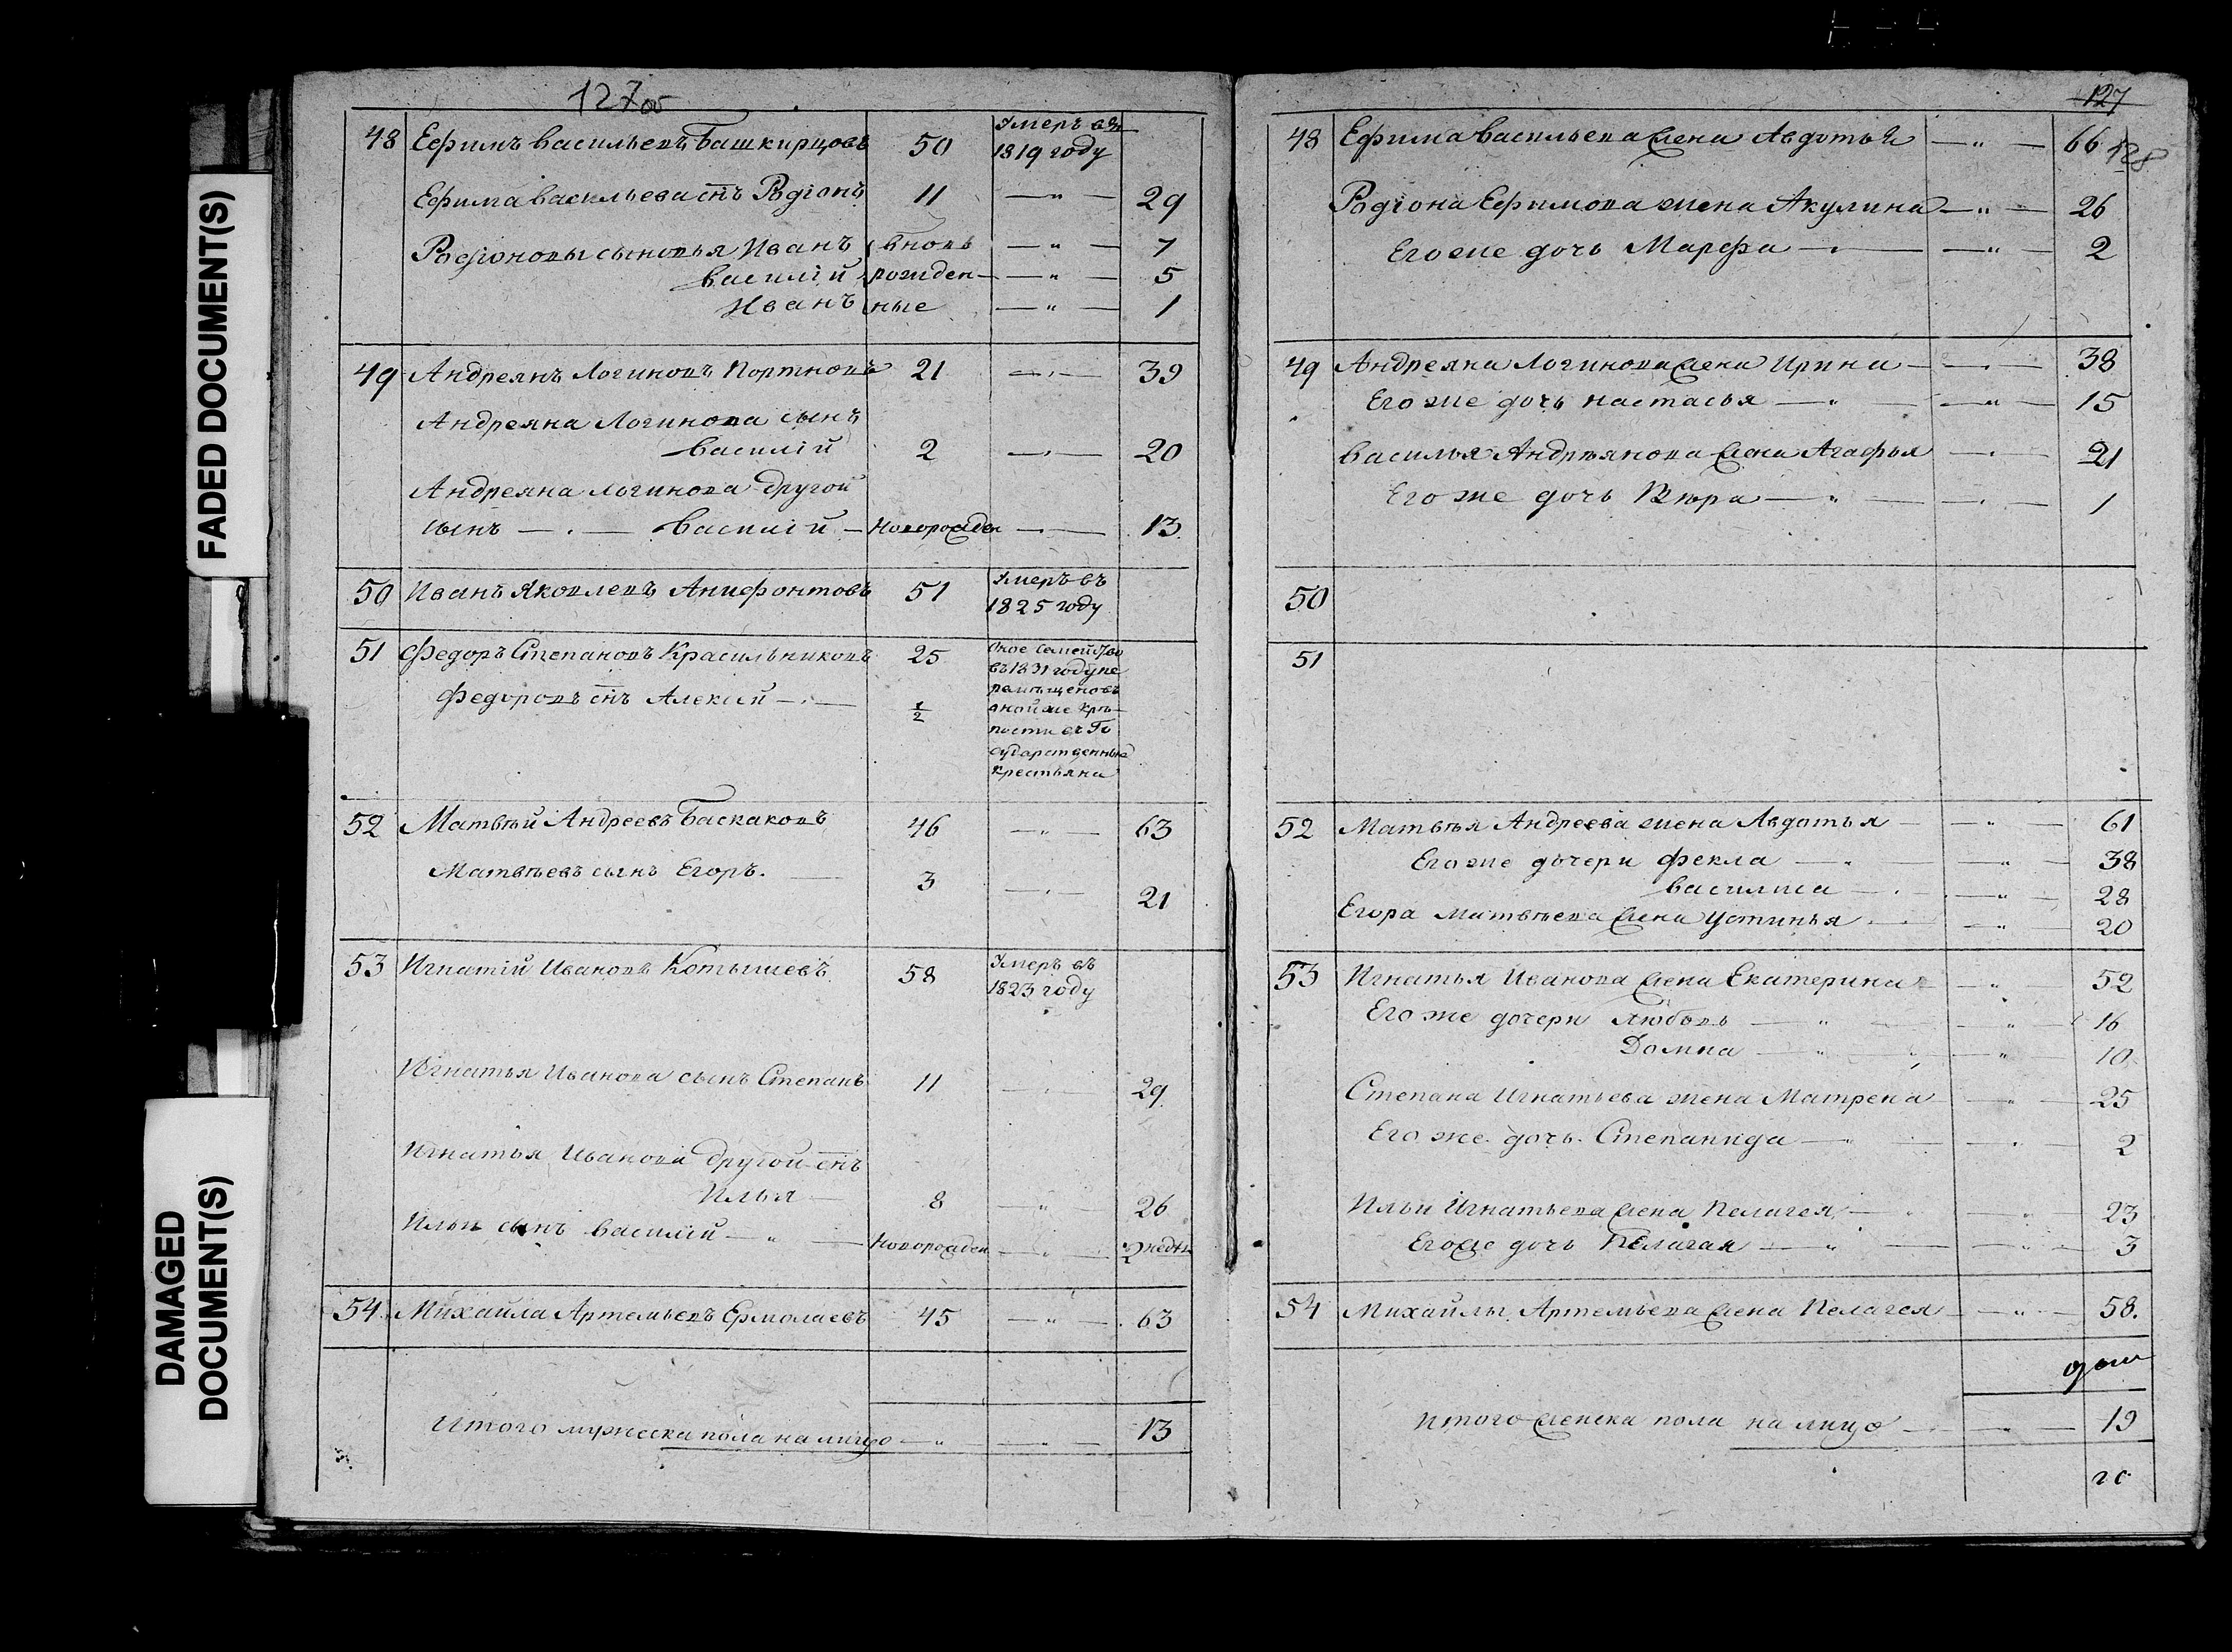 FADED DOCUMENT(S)
DAMAGED
DOCUMENT(S)
127об
48 Ефимъ Васильевъ Башкирцовъ 50 Умеръ въ
1819 году
Ефима Васильева снъ Родіонъ 11 — „ — 29
Родіоновы сыновья Иванъ вновь — „ — 7
Василій рожден — „ — 5
Иванъ ные — „ — 1
49 Андреянъ Логиновъ Портновъ 21 — „ — 39
Андреяна Логинова сынъ
Василій 2 — „ — 20
Андреяна Логинова другой
сынъ — „ — Василій — Новорожден — „ — 13
50 Иванъ Яковлевъ Анифонтовъ 51 Умеръ въ
1825 году
51 Федоръ Степановъ Красильниковъ 25 Оное Семейство
въ 1831 году пе
ремѣщеновъ
Федоровъ снъ Алексѣй — „ — 1/2 оной же Крѣ
пости въ Го
сударственные
крестьяна
52 Матвѣй Андреевъ Баскаковъ 46 — „ — 63
Матвѣевъ сынъ Егоръ. — 3 — „ — 21
53 Игнатій Ивановъ Котышевъ 58 Умеръ въ
1823 году
Игнатья Иванова сынъ Степанъ 11 — „ — 29
Игнатья Иванова другой снъ
Илья — 8 — „ — 26
Ильи сынъ Василій — „ — Новорожден — „ — 2 недѣл
54 Михайла Артемьевъ Ермолаевъ 45 — „ — 63
Итого мужеска пола на лицо — „ — 13
127
128
48 Ефима Васильева жена Авдотья — „ — 66
Родіона Ефимова жена Акулина — „ — 26
Его же дочь Марфа — „ — 2
49 Андреяна Логинова жена Ирина — „ — 38
Его же дочь Настасья — „ — 15
Василья Андреянова жена Агафья — „ — 21
Его же дочь — „ — 1
50
51
52 Матвѣя Андреева жена Авдотья — „ — 61
Его же дочери Фекла — „ — 38
Василиса — „ — 28
Егора Матвѣева жена Устинья — „ — 20
53 Игнатья Иванова жена Екатерина — „ — 52
Его же дочери Любовь — „ — 16
Домна — „ — 10
Степана Игнатьева жена Матрена — „ — 25
Его же дочь Степанида — „ — 2
Ильи Игнатьева жена Пелагея — „ — 23
Его же дочь Пелагая — „ — 3
54 Михайлы Артемьева жена Пелагея — „ — 58.
Итого женска пола на лицо — „ — 19